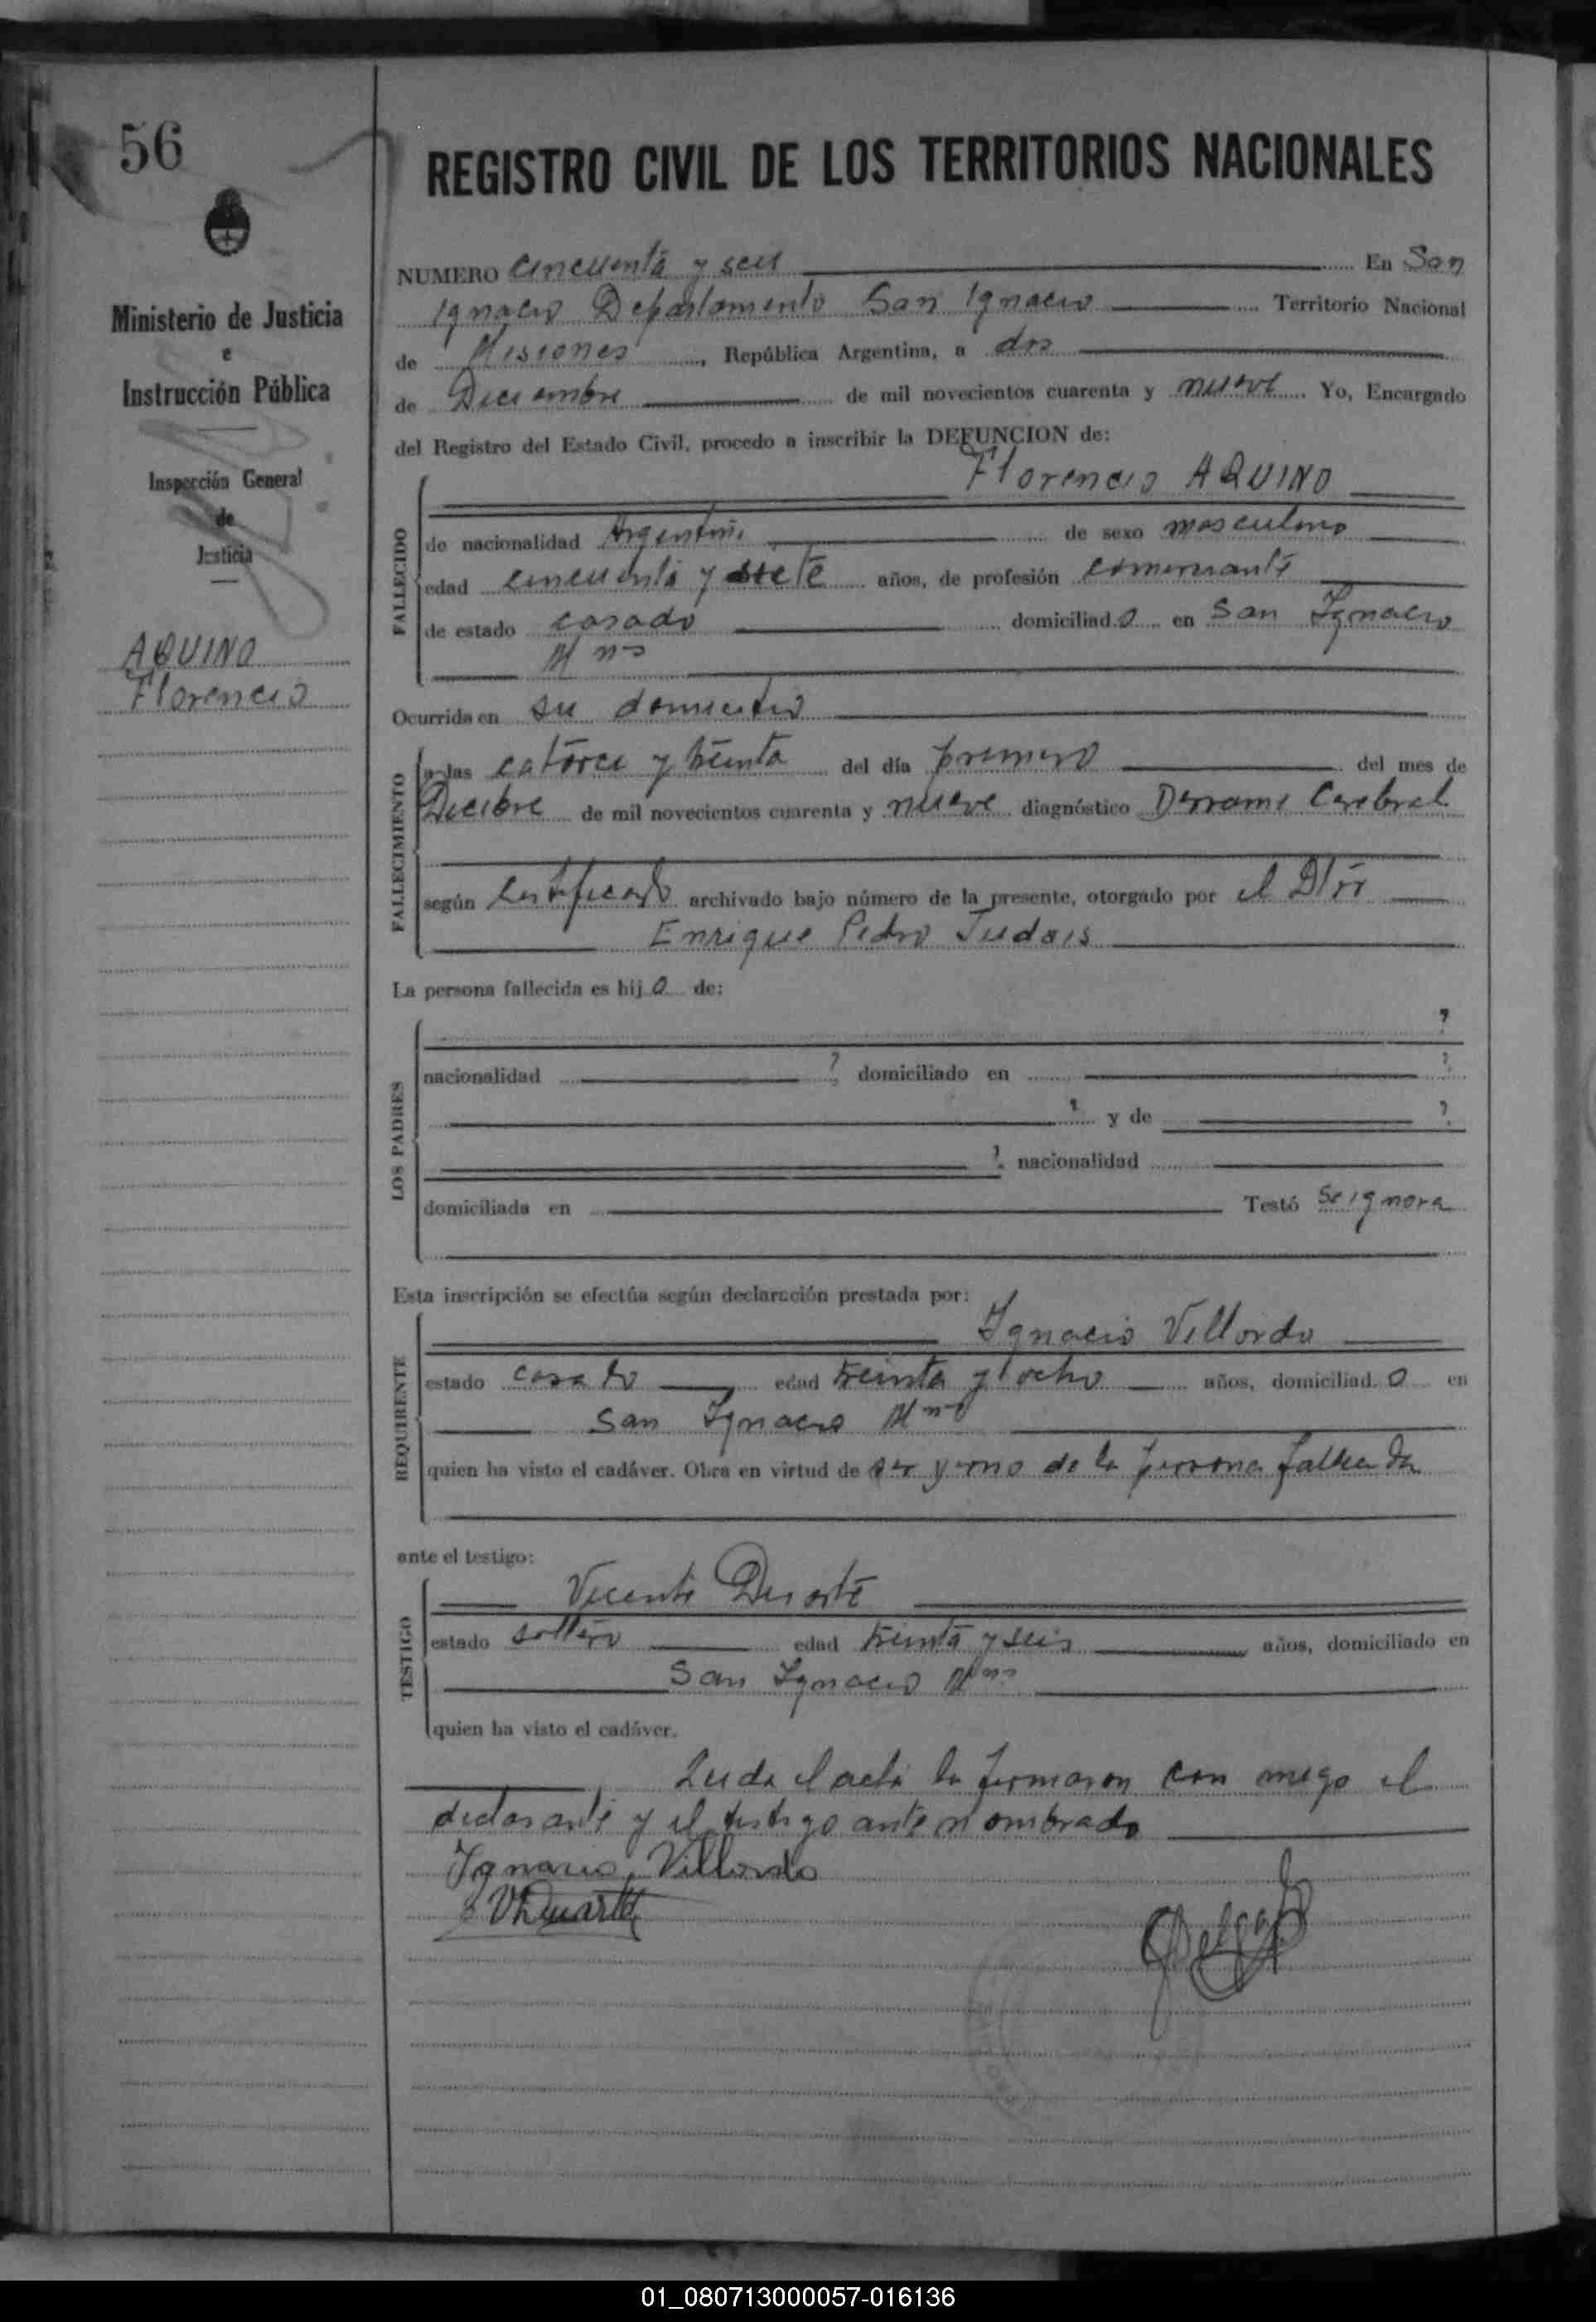 56
Ministerio de Justicia
e
Instrucción Pública
Inspección General
de
Justicia
AQUINO
Florencio
REGISTRO CIVIL DE LOS TERRITORIOS NACIONALES
NUMERO cincuenta y seis En San
Ignacio Departamento San Ignacio Territorio Nacional
de Misiones, República Argentina, a dos
de Diciembre de mil novecientos cuarenta y nueve. Yo, Encargado
del Registro del Estado Civil, procedo a inscribir la DEFUNCION de:
Florencio AQUINO
FALLECIDO
de nacionalidad Argentina de sexo masculino
edad cincuenta y siete años, de profesión comerciante
de estado casado domiciliado en San Ignacio
Mnes
Ocurrida en su domicilio
FALLECIMIENTO
a las catorce y treinta del día primero del mes de
Dicibre de mil novecientos cuarenta y nueve diagnóstico Derrame Cerebral
según certificado archivado bajo número de la presente, otorgado por el
Enrique Pedro
La persona fallecida es hijo de:
LOS PADRES
?
nacionalidad ? domiciliado en ?
? y de ?
? nacionalidad
domiciliada en Testó Se ignora
Esta inscripción se efectúa según declaración prestada por:
REQUIRENTE
Ignacio Villordo
estado casado edad treinta y ocho años, domiciliado en
San Ignacio Mnes
quien ha visto el cadáver. Obra en virtud de ser yerno de la persona fallecida
ante el testigo:
TESTIGO
Vicente Duarte
estado soltero edad treinta y seis años, domiciliado en
San Ignacio Mnes
quien ha visto el cadáver.
Leida el acta la firmaron con migo el
declarante y el testigo ante nombrado
Ignacio Villordo
VDuarte
01_080713000057-016136